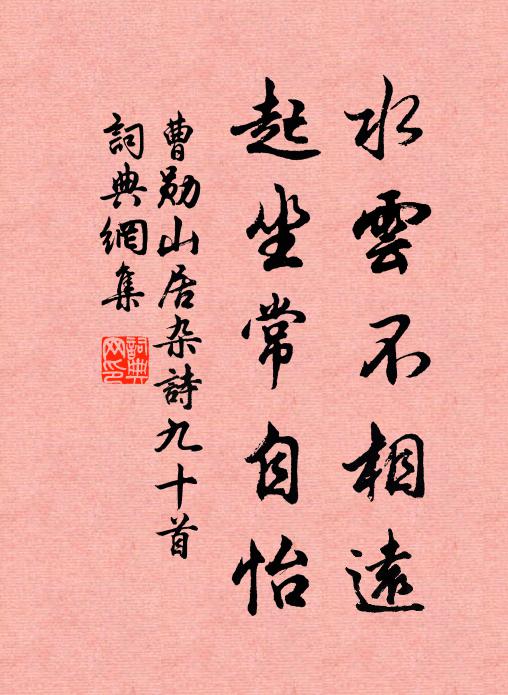 水雲不相遠
起坐常自怡
曹勛山居杂詩九十首
詞典網集
詞典網印